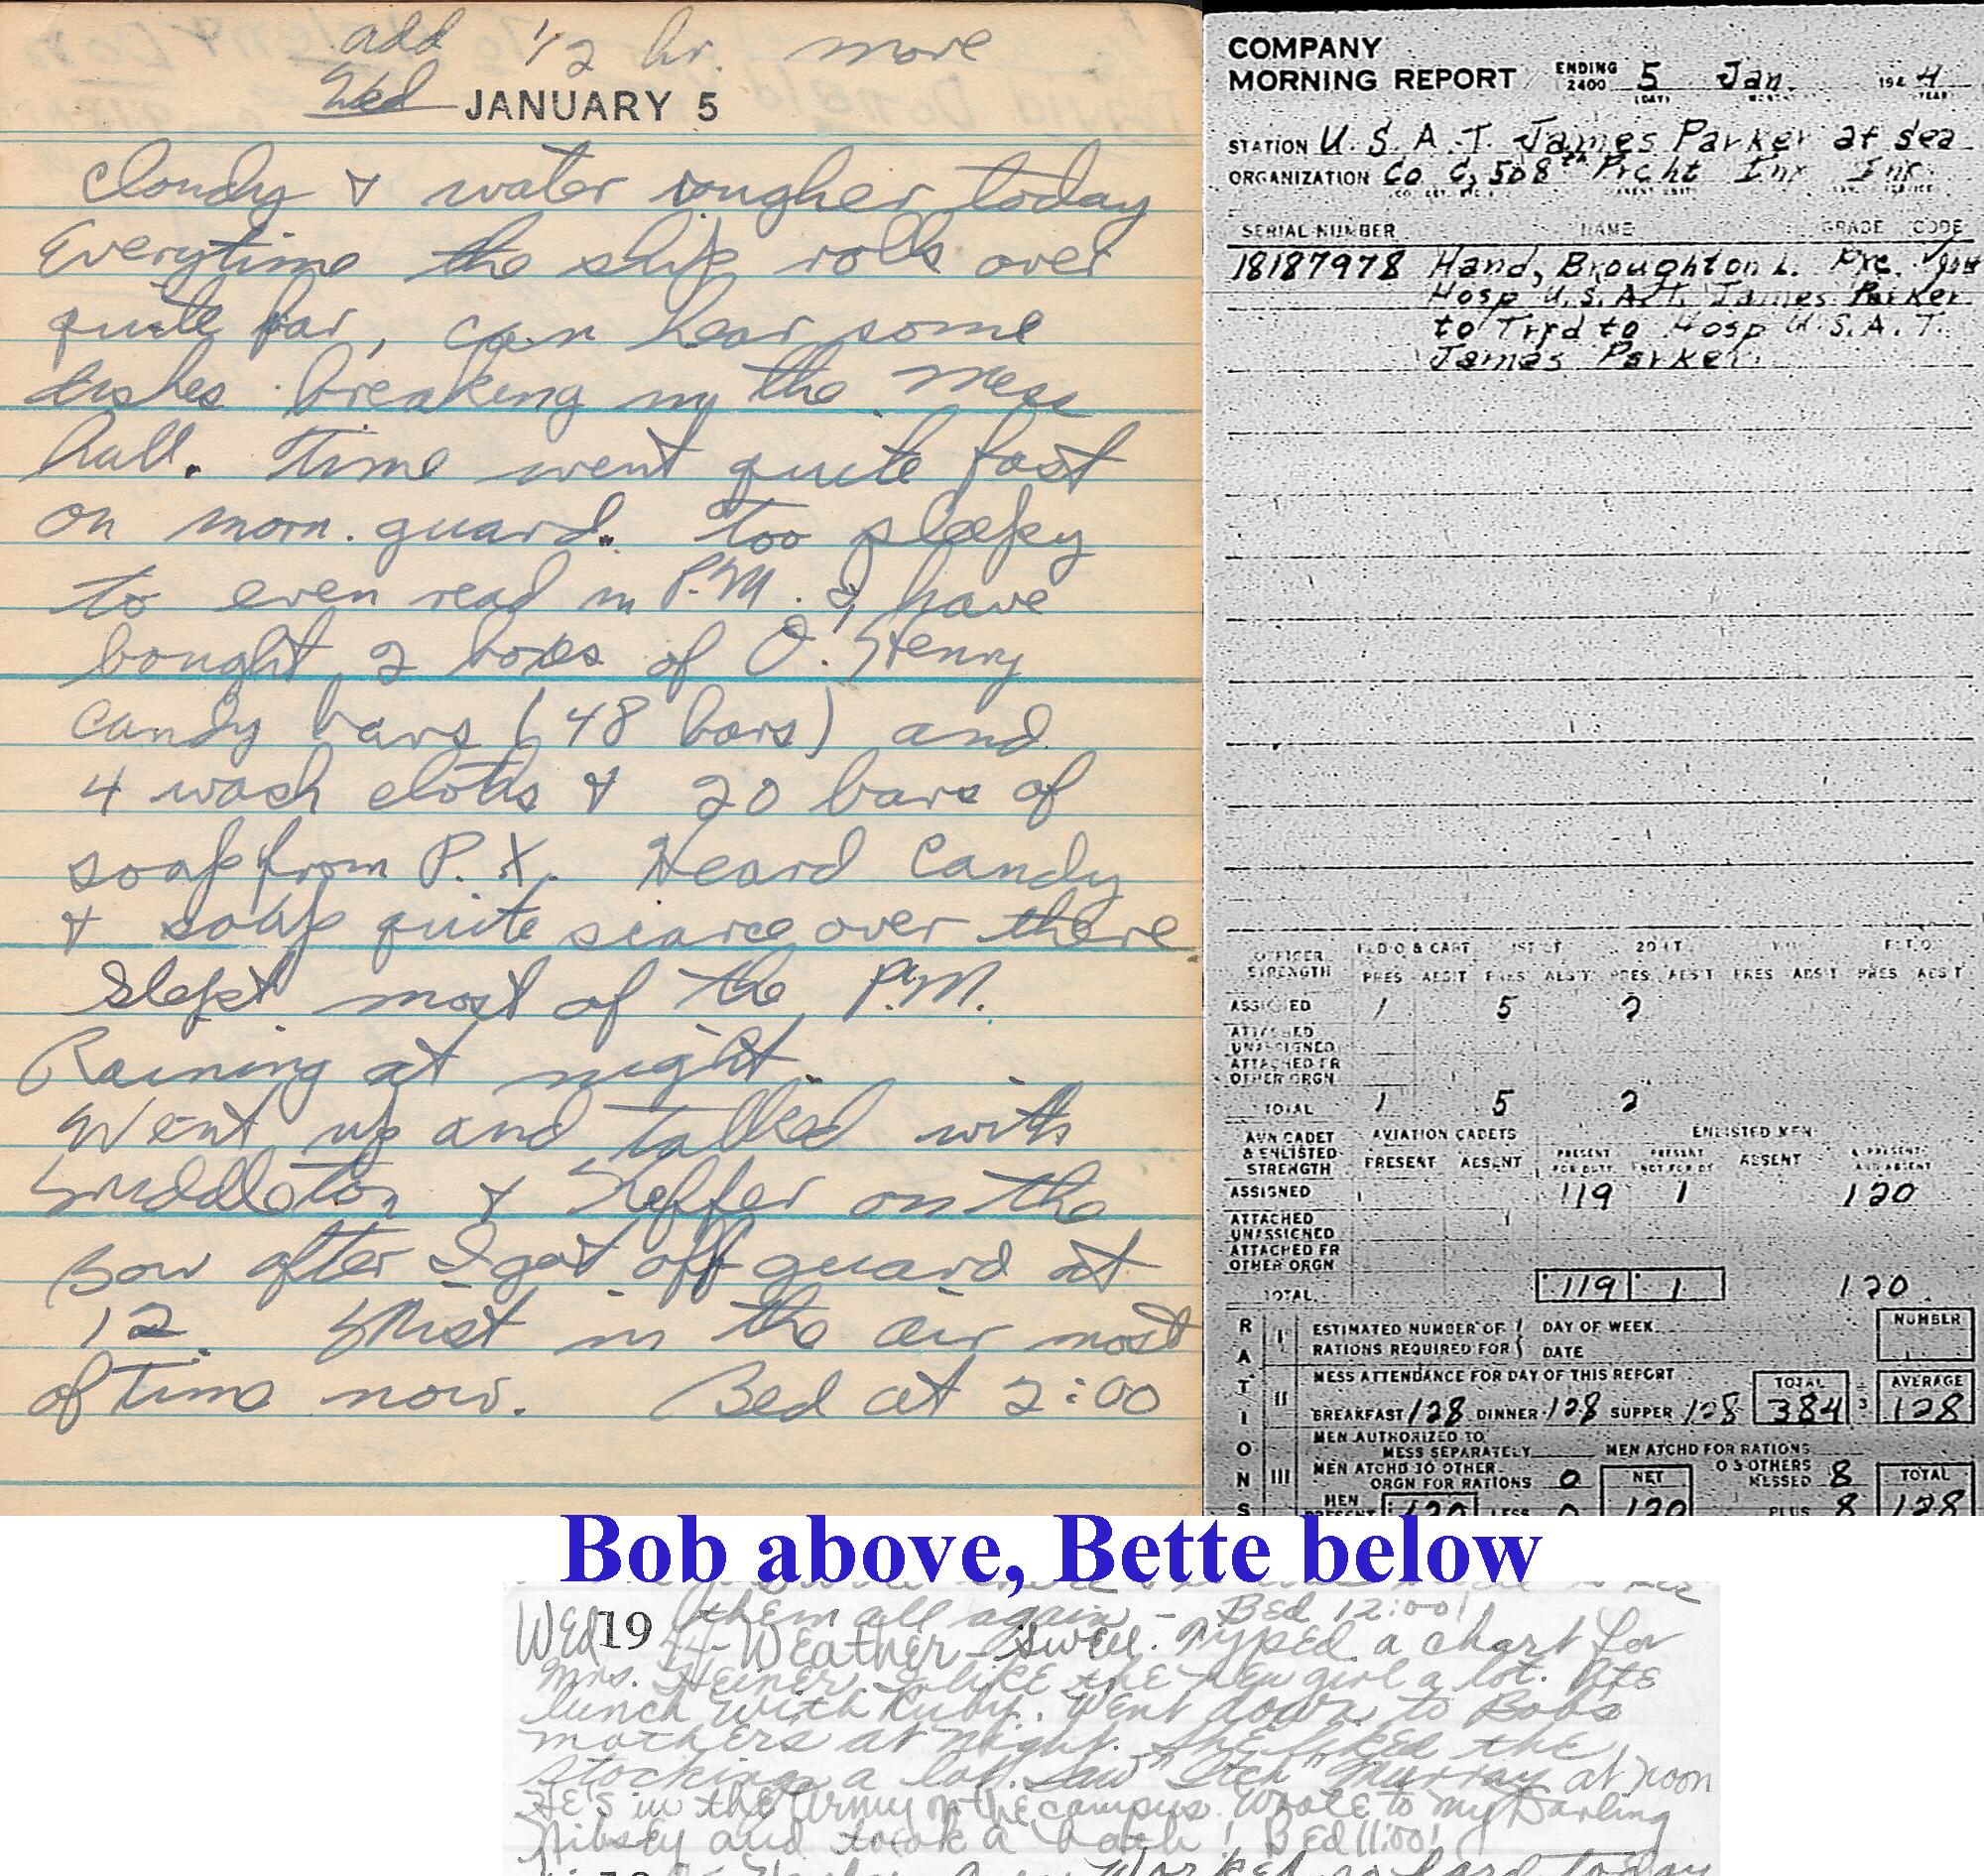 add 1/2 hr. more
Wed JANUARY 5
Cloudy & water rougher today
Everytime the ship rolls over
quite far, can hear some
dishes breaking in the mess
hall. Time went quite fast
on morn. guard. Too sleepy
to even read in P.M. I have
bought 2 boxes of O. Henry
Candy bars (48 bars) and
4 wash cloths & 20 bars of
soap from P.X. Heard Candy
& soap quite scarce over there
Slept most of the P.M.
Raining at night.
Went up and talked with
& Sheffer on the
Bow after I got off guard at
12. Mist in the air most
of time now. Bed at 2:00
COMPANY
MORNING REPORT ENDING 2400 5 Jan. 194 4
(DAY) MONTH YEAR
STATION U.S.A.T. James Parker at Sea
ORGANIZATION Co G, 508th Prcht Inf Inf
SERIAL NUMBER NAME GRADE CODE
18187978 Hand, Broughton L. Pfc.
Hosp U.S.A.T. James Parker
to Trfd to Hosp U.S.A.T.
James Parker
OFFICER STRENGTH
PRES ABS'T PRES ABS'T PRES ABS'T PRES ABS'T PRES ABS'T
ASSIGNED 1 5 2
ATTACHED UNASSIGNED
ATTACHED FR OTHER ORGN
TOTAL 1 5 2
AVN CADET & ENLISTED STRENGTH
AVIATION CADETS ENLISTED MEN
PRESENT ABSENT PRESENT FOR DUTY PRESENT NOT FOR DY ABSENT PRESENT AND ABSENT
ASSIGNED 119 1 120
ATTACHED UNASSIGNED
ATTACHED FR OTHER ORGN
TOTAL 119 1 120
RATIONS
I ESTIMATED NUMBER OF RATIONS REQUIRED FOR DAY OF WEEK DATE NUMBER
II MESS ATTENDANCE FOR DAY OF THIS REPORT TOTAL AVERAGE
BREAKFAST 128 DINNER 128 SUPPER 128 384 ÷ 3 128
III MEN AUTHORIZED TO MESS SEPARATELY MEN ATCHD FOR RATIONS
MEN ATCHD TO OTHER ORGN FOR RATIONS 0 NET O & OTHERS MESSED 8 TOTAL
MEN PRESENT 120 LESS 0 120 PLUS 8 128
Bob above, Bette below
them all again - Bed 12:00!
Wed 19 44 - Weather - swell. Typed a chart for
Mrs. Heiner. I like the new girl a lot. Ate
lunch with Ruby. Went down to Bobs
mothers at night. She liked the
stockings a lot. Saw "Itch" Murray at noon
He's in the Army on the campus. Wrote to my Darling
Nibsey and took a bath! Bed 11:00!
Worked so hard today